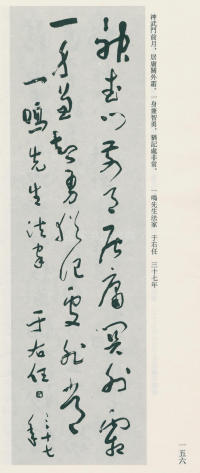 神武門前月，居庸關外霜，一身兼智勇，猶記處非常。　　一鳴先生法家　于右任　三十七年
神武門前月居庸關外霜
一身兼智勇猶記處非常
一鳴先生法家 于右任 三十七年
一五六